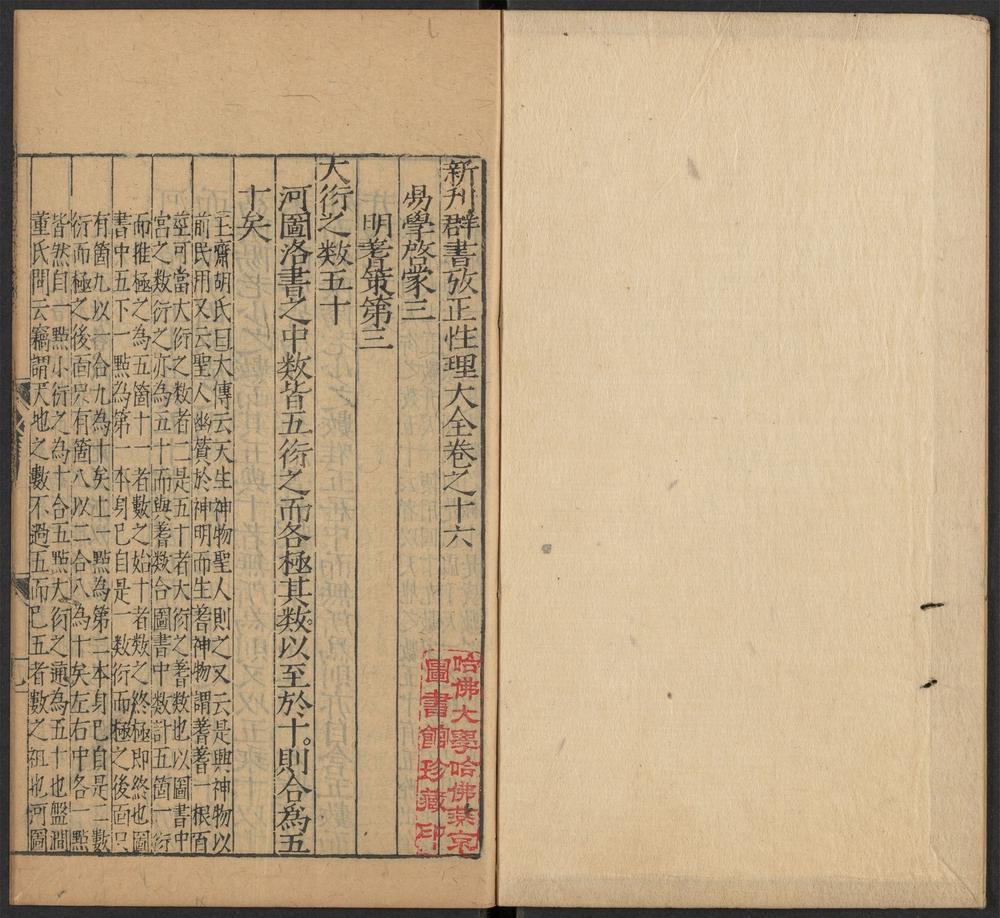 新刊群書攷正性理大全卷之十六
易學啓蒙三
明蓍策第三
大衍之數五十
河圖洛書之中數皆五衍之而各極其數以至於十則合為五
十矣
玉齋胡氏曰大傳云天生神物聖人則之又云是興神物以
前民用又云聖人幽贊於神明而生蓍神物謂蓍蓍一根百
莖可當大衍之數者二是五十者大衍之蓍數也以圖書中
宮之數衍之亦為五十而與蓍數合圖書中數計五箇一衍
而推極之為五箇十一者數之始十者數之終極即終也圖
書中五下一點為第一本身已自是一數衍而極之後面只
有箇九以一合九為十矣上一點為第二本身已自是二數
衍而極之後面只有箇八以二合八為十矣左右中各一點
皆然自一點小衍之為十合五點大衍之通為五十也盤澗
董氏問云竊謂天地之數不過五而已五者數之祖也河圖
哈佛大學哈佛燕京
圖書館珍藏印